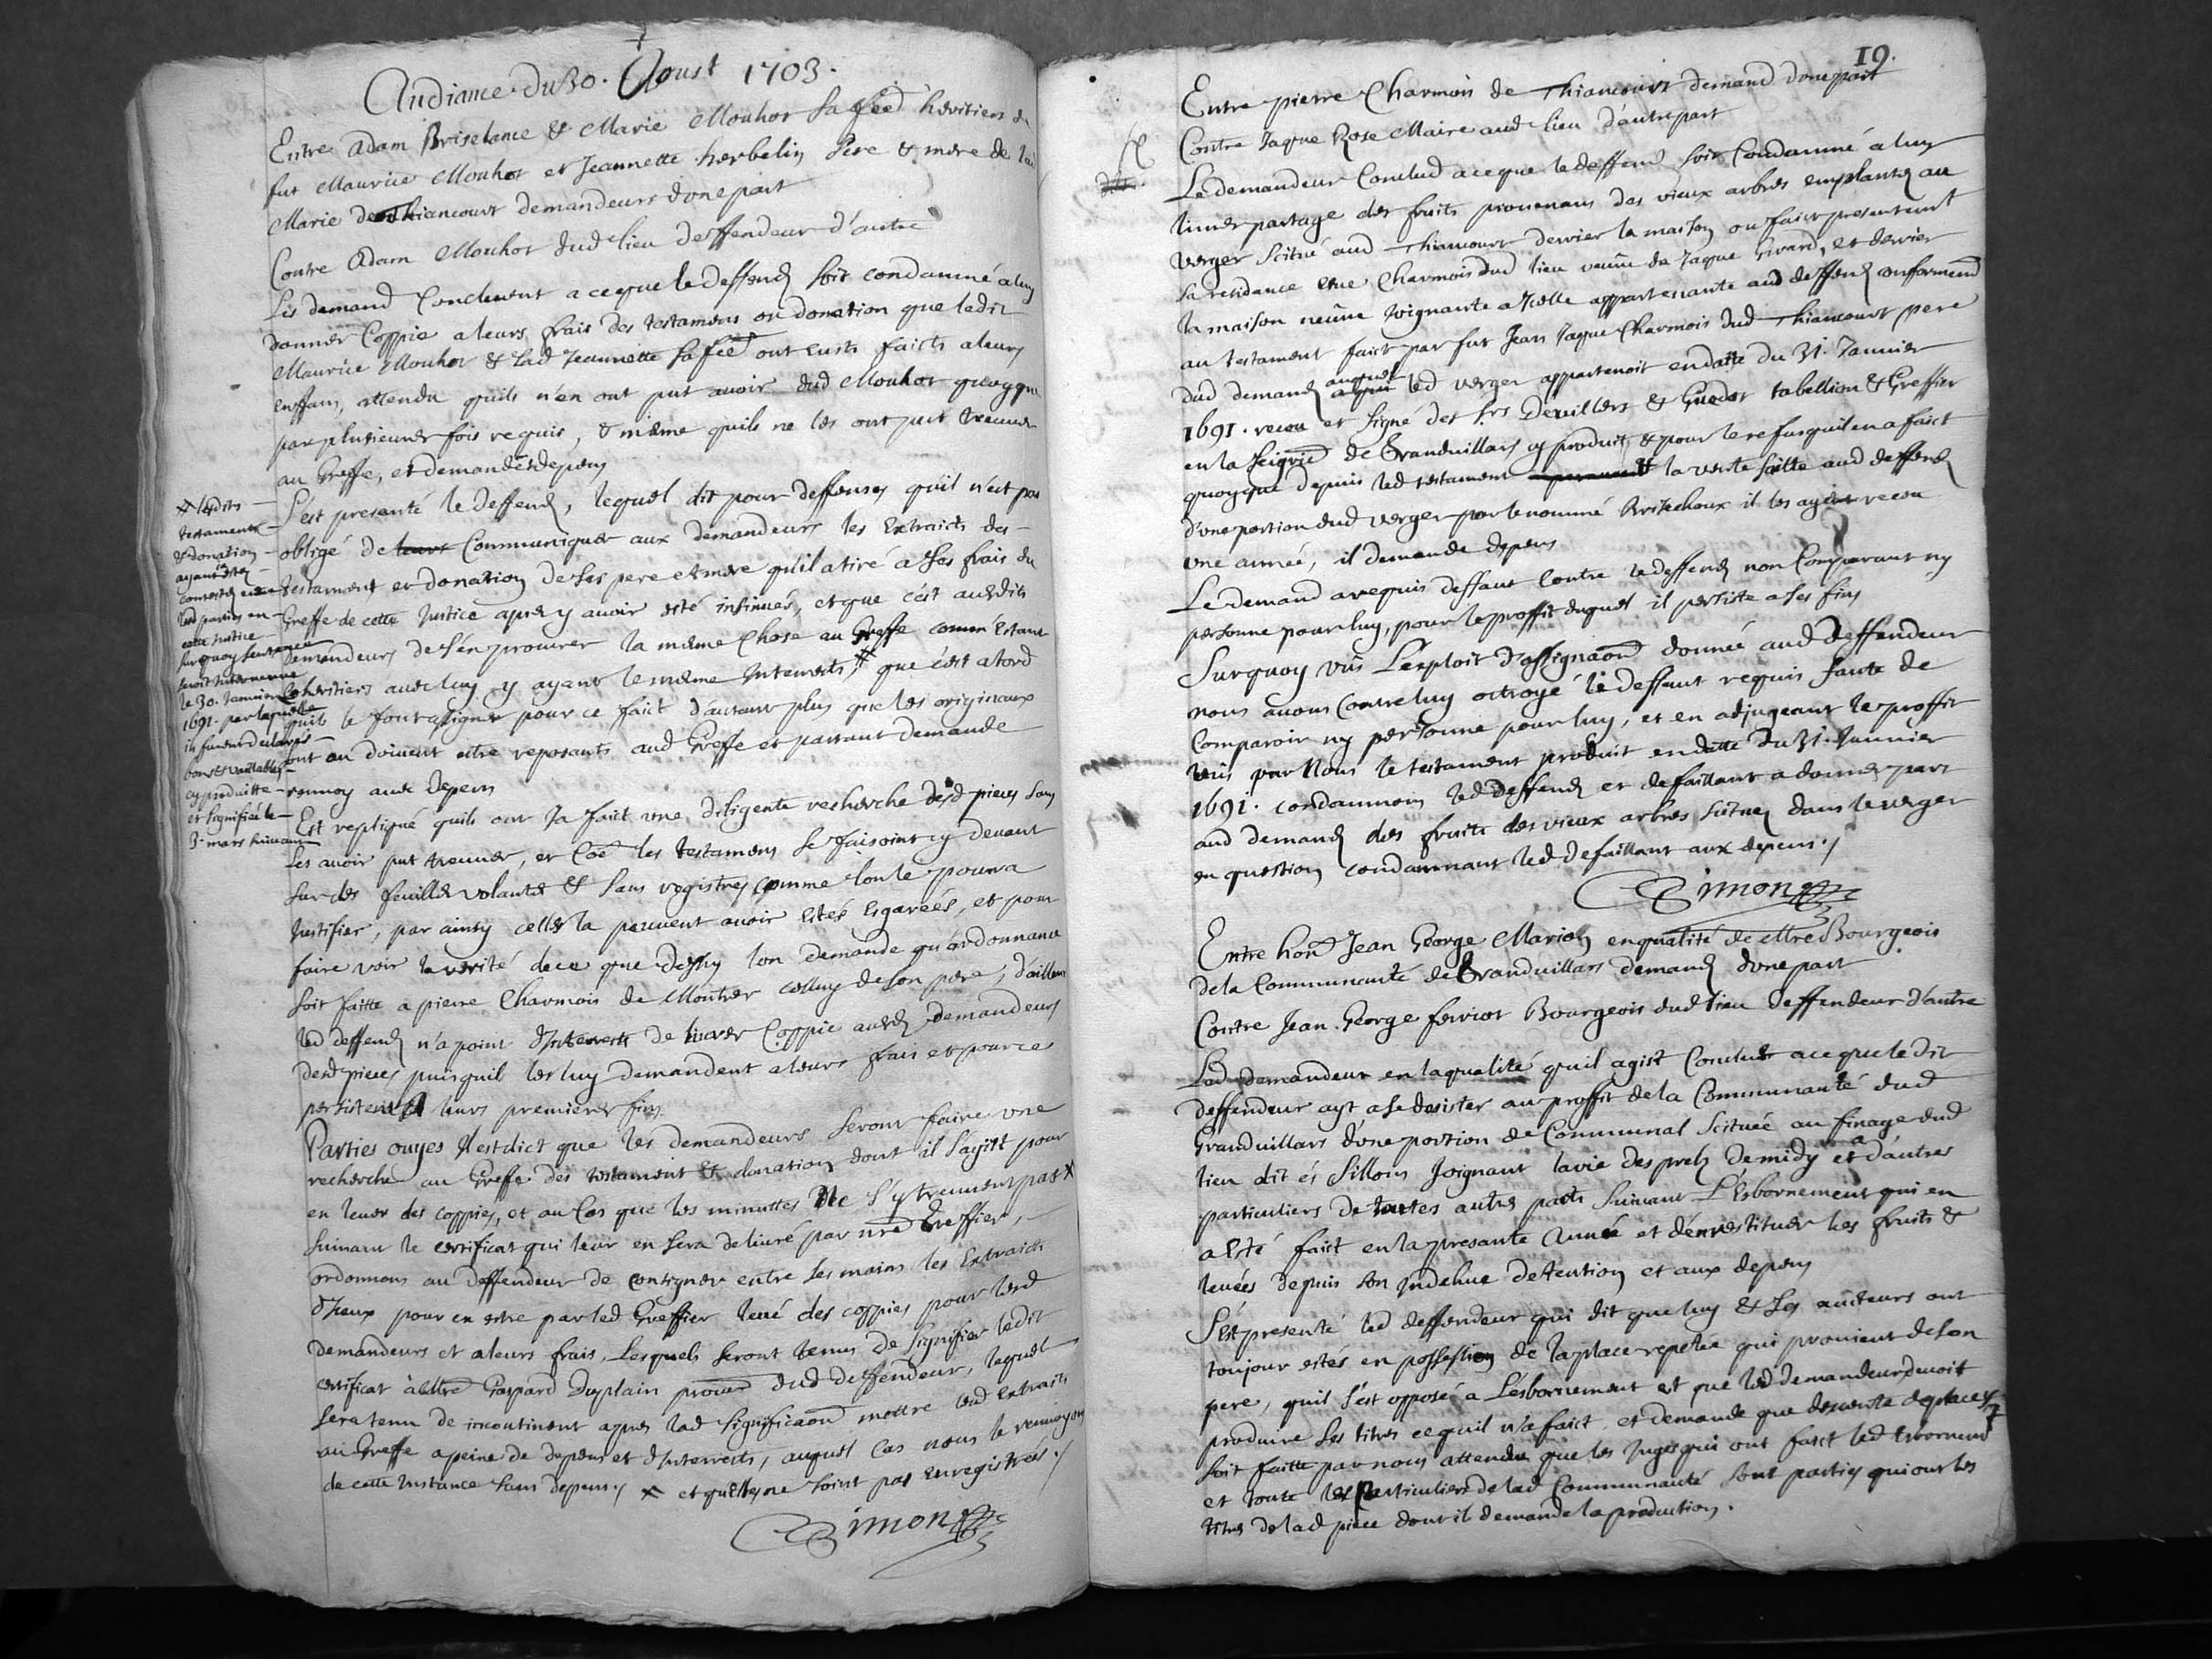 Audiance du 30. Aoust 1703.
Entre Adam Briselance & Marie Mouhot sa feê héritiers de
fut Maurice Mouhot et Jeannette herbelin Pere & mere de lad
Marie de Thiancourt demandeurs d'one part
Contre Adam Mouhot dud lieu deffendeur d'autre
Les demand concluent a ce que le deffend soit condamné a leur
donner Coppie a leurs frais des testamens ou donation que ledit
Maurice Mouhot & lad Jeannette sa feê ont eusts faicts a leurs
enffans, attendu quils n'en ont put avoir dud Mouhot quoyque
par plusieures fois requis, & même quils ne les ont put treuuer
au Greffe, et demande depens
S'est presenté le deffend, lequel dit pour deffenses qu'il n'est pas
obligé de leurs Communiquer aux demandeurs les Extraicts des
testament et donation de ses pere et mere qu'il a tiré à ses frais du
Greffe de cette Justice apres y avoir esté insinués, et que c'est ausdits
demandeurs de s'en procurer la même chose au Greffe comme Estant
Cohéritiers avec luy y ayant le même Interests, # que c'est a tord
quils le font assigner pour ce faict d'autant plus que les originaux
sont ou doivent estre reposants aud Greffe et partant demande
renuoy auec depens
# lesdits
testaments
& donation
ayant estez
contestez entre
lesd parties en
cette Justice
sur quoy sentence
seroit Interuenue
le 30. Januier
1691. par laquelle
ils furent declarés
bons & vaillables
cy produitte
et signifiée le
3. mars suivant
Est repliqué quils ont Ja faict une diligente recherche desd pieces sans
les avoir put treuuer, et Coê les testamens se faisoint cy devant
sur des feuilles volantes & sans registres comme l'on le pourra
Justifier, par ainsy celles la peuuent avoir estés Egarées, et pour
faire voir la verité de ce que dessus l'on demande qu'ordonnance
soit faitte a pierre Charmois de Montrer celluy de son pere, d'ailleurs
led deffend n'a point d'Interests de livrer Coppie ausd demandeurs
desd pieces puisquil les luy demandent a leurs frais et pour ce
persistent a leurs premieres fins
Parties ouyes Il est dict que les demandeurs seront faire une
recherche au Greffe des testament & donation dont il s'agist pour
en lever des coppies, et au Cas que les minuttes ne s'y treuuent pas x
suivant le certificat qui leur en sera deliuré par nre Greffier,
ordonnons au deffendeur de consigner entre ses mains les Extraicts
d'Iceux pour en estre par led Greffier leué des coppies pour lesd
demandeurs et a leurs frais, Lesquels seront tenus de signifier ledit
certificat à Mtre Gaspard Duplain procur dud deffendeur, lequel
sera tenu de incontinent apres lad significaôn mettre lesd Extraits
au Greffe a peine de depens et d'Interrests, auquel cas nous le renuoyons
de cette Instance sans depens./ x et quelles ne soint pas enregistrées./
Simon
19.
Entre pierre Charmois de Thiancourt demand d'one part
Contre Jaque Rose Maire aud lieu d'autre part
Le demandeur Conclud a ce que le deffend soit Condamné a luy
livrer partage des fruits prouenans des vieux arbres emplantez au
verger scitué aud Thiancourt derrier la maison ou faict presentement
sa residance Charmois dud lieu veuue de Jaque Girard, et derrier
la maison neuue Joignante a Icelle appartenante aud deffend conformemt
au testament faict par fut Jean Jaque Charmois dud Thiancourt pere
dud demand auquel led verger appartenoit en datte du 31. Januier
1691. receu et signé des Srs Deuillers & Guedot tabellion & Greffier
en la seigrie de Granduillars cy produit, & pour le refus quil en a faict
quoyque depuis led testament la vente faitte aud deffend
d'one portion dud verger par le nommé Brisechoux il les ayent receu
une année, il demande depens
Le demand a requis deffaut Contre le deffend non Comparant ny
personne pour luy, pour le proffit duquel il persiste a ses fins
Surquoy vûs L'exploit d'assignaôn donnée aud deffendeur
nous avons Contre luy octroyé le deffaut requis faute de
Comparoir ny personne pour luy, et en adjugeant le proffit
vûs par Nous le testament produit en datte du 31. Januier
1691. condamnons led deffend et deffaillant a donner part
aud demand des fruits des vieux arbres scituez dans le verger
en question condamnant led defaillant aux depens./
Simon
Entre hon Jean George Marion en qualité de Mtre Bourgeois
de la Communauté de Granduillars demand d'one part
Contre Jean George feriot Bourgeois dud lieu deffendeur d'autre
Led demandeur en la qualité quil agist Conclud a ce que ledit
deffendeur ayt a se desister au proffit de la Communauté dud
Granduillars d'one portion de Communal scituée au finage dud
lieu dit és sillons Joignant la vie des prelz de midy et a d'autres
particuliers de toutes autres parts suivant L'Esbornement qui en
a Esté faict en la presante Année et d'en restituer les fruits &
leuées depuis son Indehue detention et aux depens
S'est presenté led deffendeur qui dit que luy & ses aucteurs ont
toujour estés en possession de la place repetée qui provient de son
pere, quil s'est opposé a L'esbornement et que led demandeur devoit
produire ses titres ce quil n'a faict, et demande que descente de place
soit faitte par nous attendu que les Juges qui ont faict led Esbornemt
et toute les particuliers de lad Communauté sont parties qui ont les
titres de lad piece dont il demande la production.